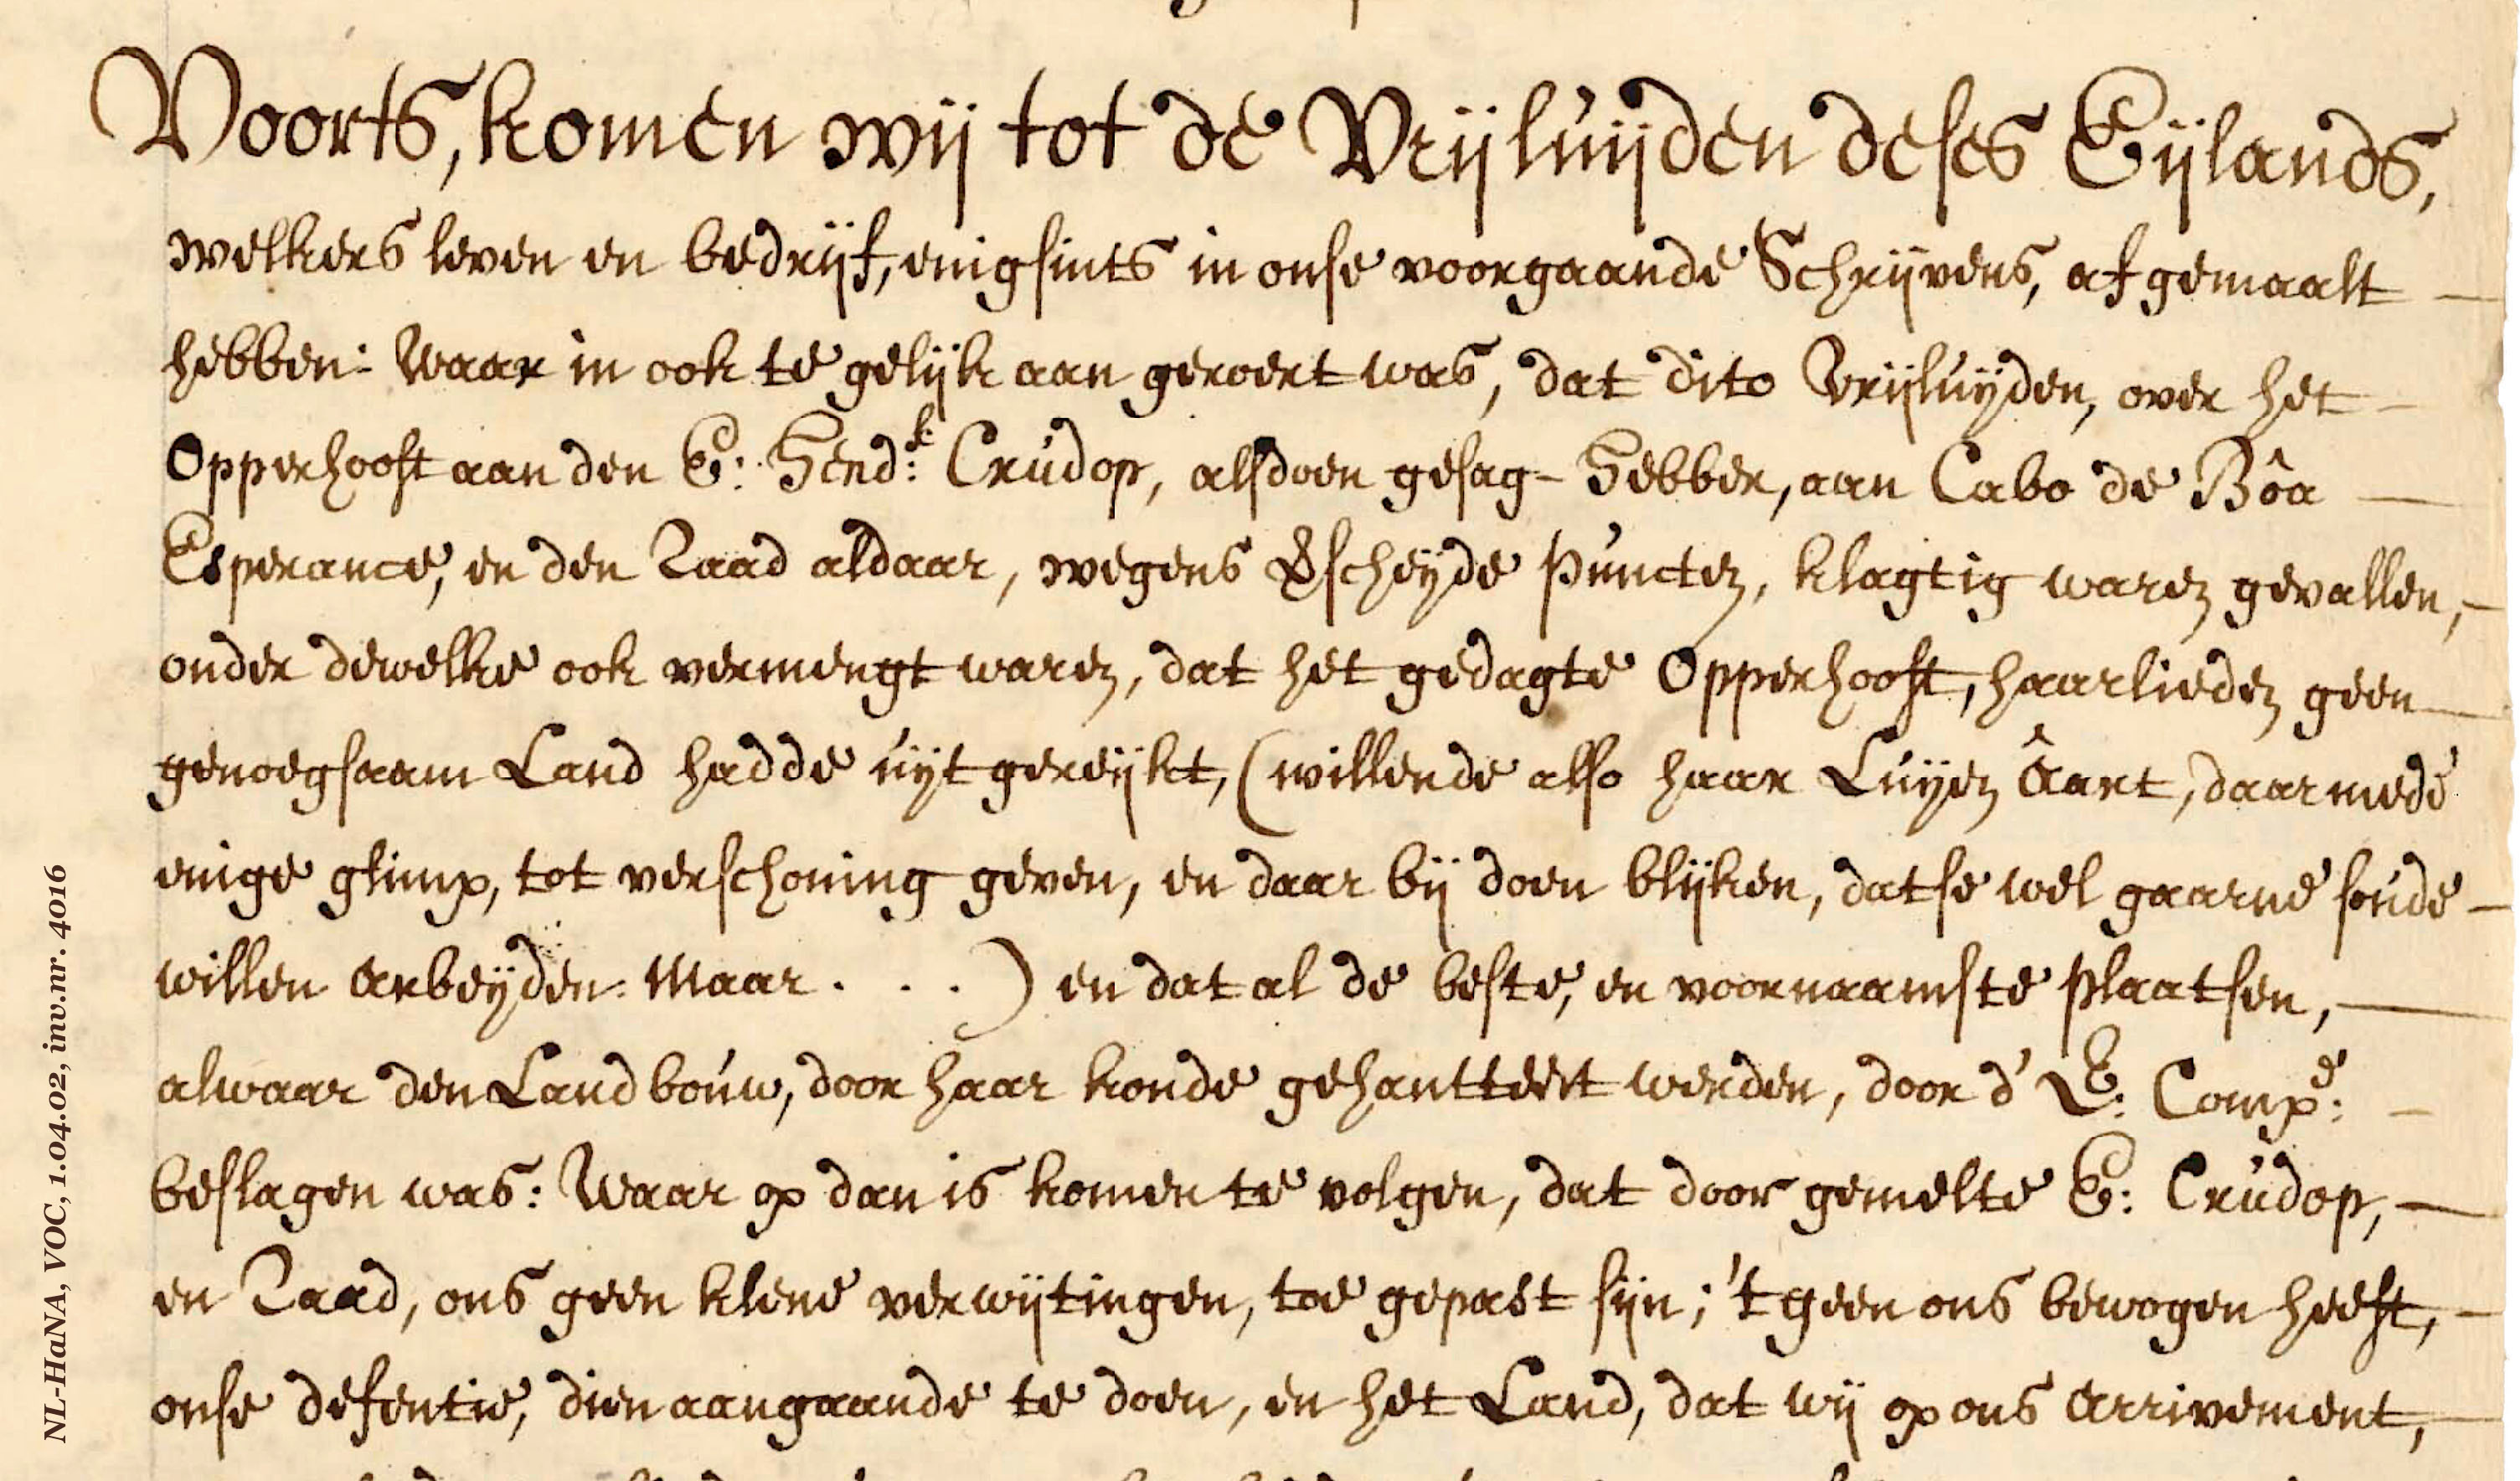 Voorts, komen wij tot de Vrijluijden deses Eijlands,
welkers leven en bedrijf, enigsints in onse voorgaande Schrijvens, af gemaalt
hebben: Waar in ook te gelijk aan geroert was, dat dito Vrijluijden, over het
Opperhooft aan den E: Hend:k Crudop, alsdoen gesag-Hebber, aan Cabo de Bôa
Esperance, en den Raad aldaar, wegens vscheijde Puncten, klagtig waren gevallen,
onder dewelke ook vermengt waren, dat het gedagte Opperhooft, haarlieden geen
genoegsaam Land hadde uijt gereijkt, (willende also haar Luijen Âart, daarmede
enige glimp, tot verschoning geven, en daar bij doen blijken, datse wel gaarne soude
willen Arbeijden: Maar . . . ) en dat al de beste, en voornaamste Plaatsen,
alwaar den Landbouw, door haar konde gehantteert werden, door d' E: Comp:e
beslagen was: Waar op dan is komen te volgen, dat door gemelte E: Crudop,
en Raad, ons geen klene verwijtingen, toe gepast sijn; 't geen ons bewogen heeft,
onse defentie, dien aangaande te doen, en het Land, dat wij op ons Arrivement,
NL-HaNA, VOC, 1.04.02, inv.nr. 4016